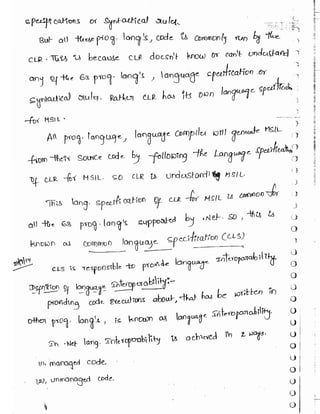 specifications or syntactical rules.
But all these prog. lang's, code is commonly run by the
CLR. This is because CLR doesn't know or can't understand
any of the 63 prog. lang's, language specification or
syntactical rules. Rather CLR has its own language specification
for MSIL.
All prog. language, language compiler will generate MSIL
from their source code by following the Language specification
of CLR for MSIL. So CLR is understand MSIL
This lang. specification of CLR for MSIL is common for
all the 63 prog. lang's supported by .Net. So, this is
known as common language specification (CLS)
CLS is responsible to provide language interoperability.
Definition of language Interoperability:-
providing code executions about, that has be written in
other prog. lang's, is known as language Interoperability.
In .Net lang. Interoperability is achieved in 2 ways.
in managed code.
unmanaged code.